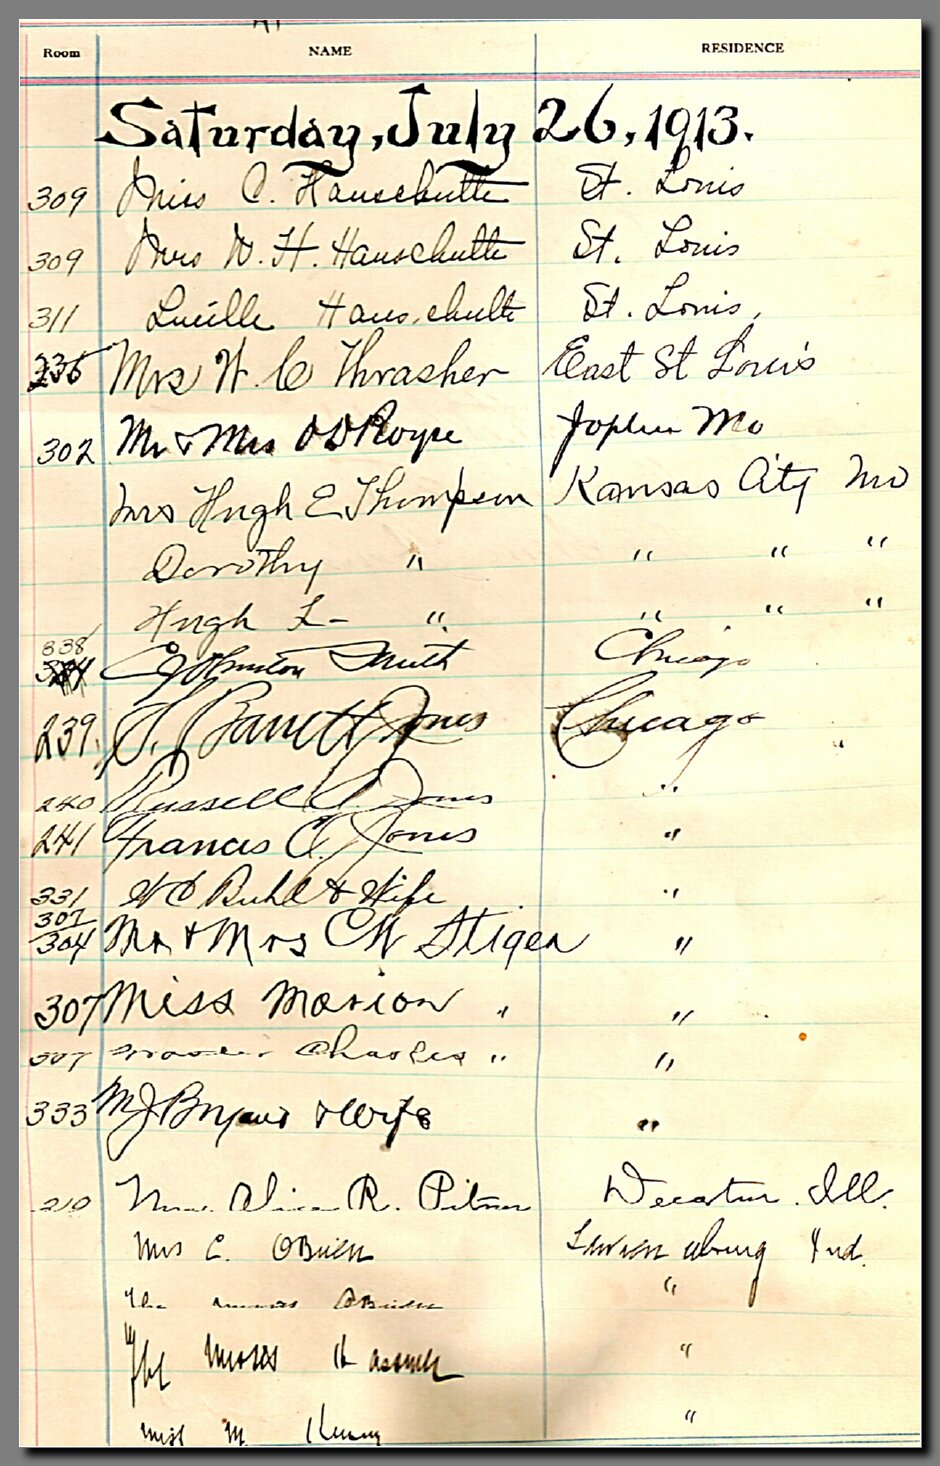 Room NAME RESIDENCE
Saturday, July 26, 1913.
309 Miss C. Hauschulte St. Louis
309 Mrs W. H. Hauschulte St. Louis
311 Lucille Hauschulte St. Louis,
Mrs W C Thrasher East St Louis
302 Mr & Mrs O D Royse Joplin Mo
Mrs Hugh E Thompson Kansas City Mo
Dorothy " " " "
Hugh " " " "
338
Johnston Smith Chicago
239. S. Barrett Jones Chicago
240 Russell A. Jones "
241 Francis C. Jones "
331 W C Buhl & Wife "
307
304 Mr & Mrs C W Stiger "
307 Miss Marion " "
307 Master Charles " "
333 M J Bryant & Wife "
210 Mrs. Alice R. Pitner Decatur. Ill.
Mrs C. OBrien Lawrenceburg Ind.
The Misses OBrien "
The Misses "
Miss M. "